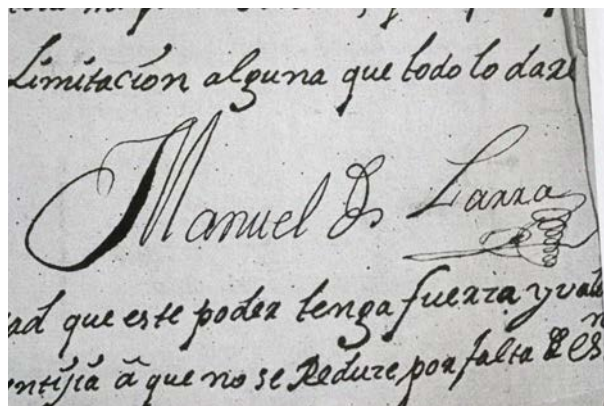 Limitacion alguna que todo lo dare
Manuel de Larra
ad que este poder tenga fuerza y val
ntijia â que no se Redure por falta de es